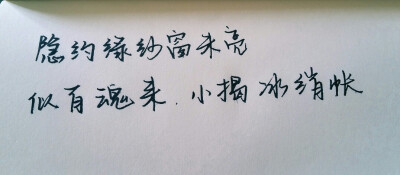 隐约绿纱窗未亮
似有魂来.小揭冰绡帐